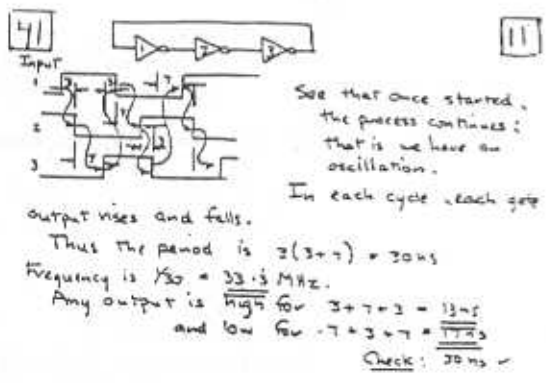 41
11
1 2 3
Input
1
2
3
See that once started,
the process continues:
that is we have an
oscillation.
In each cycle, each gate
output rises and falls.
Thus the period is 3(3+7) = 30ns
Frequency is 1/30 = 33.3 MHz.
Any output is high for 3+7+3 = 13ns
and low for 7+3+7 = 17ns
Check: 30 ns ✓